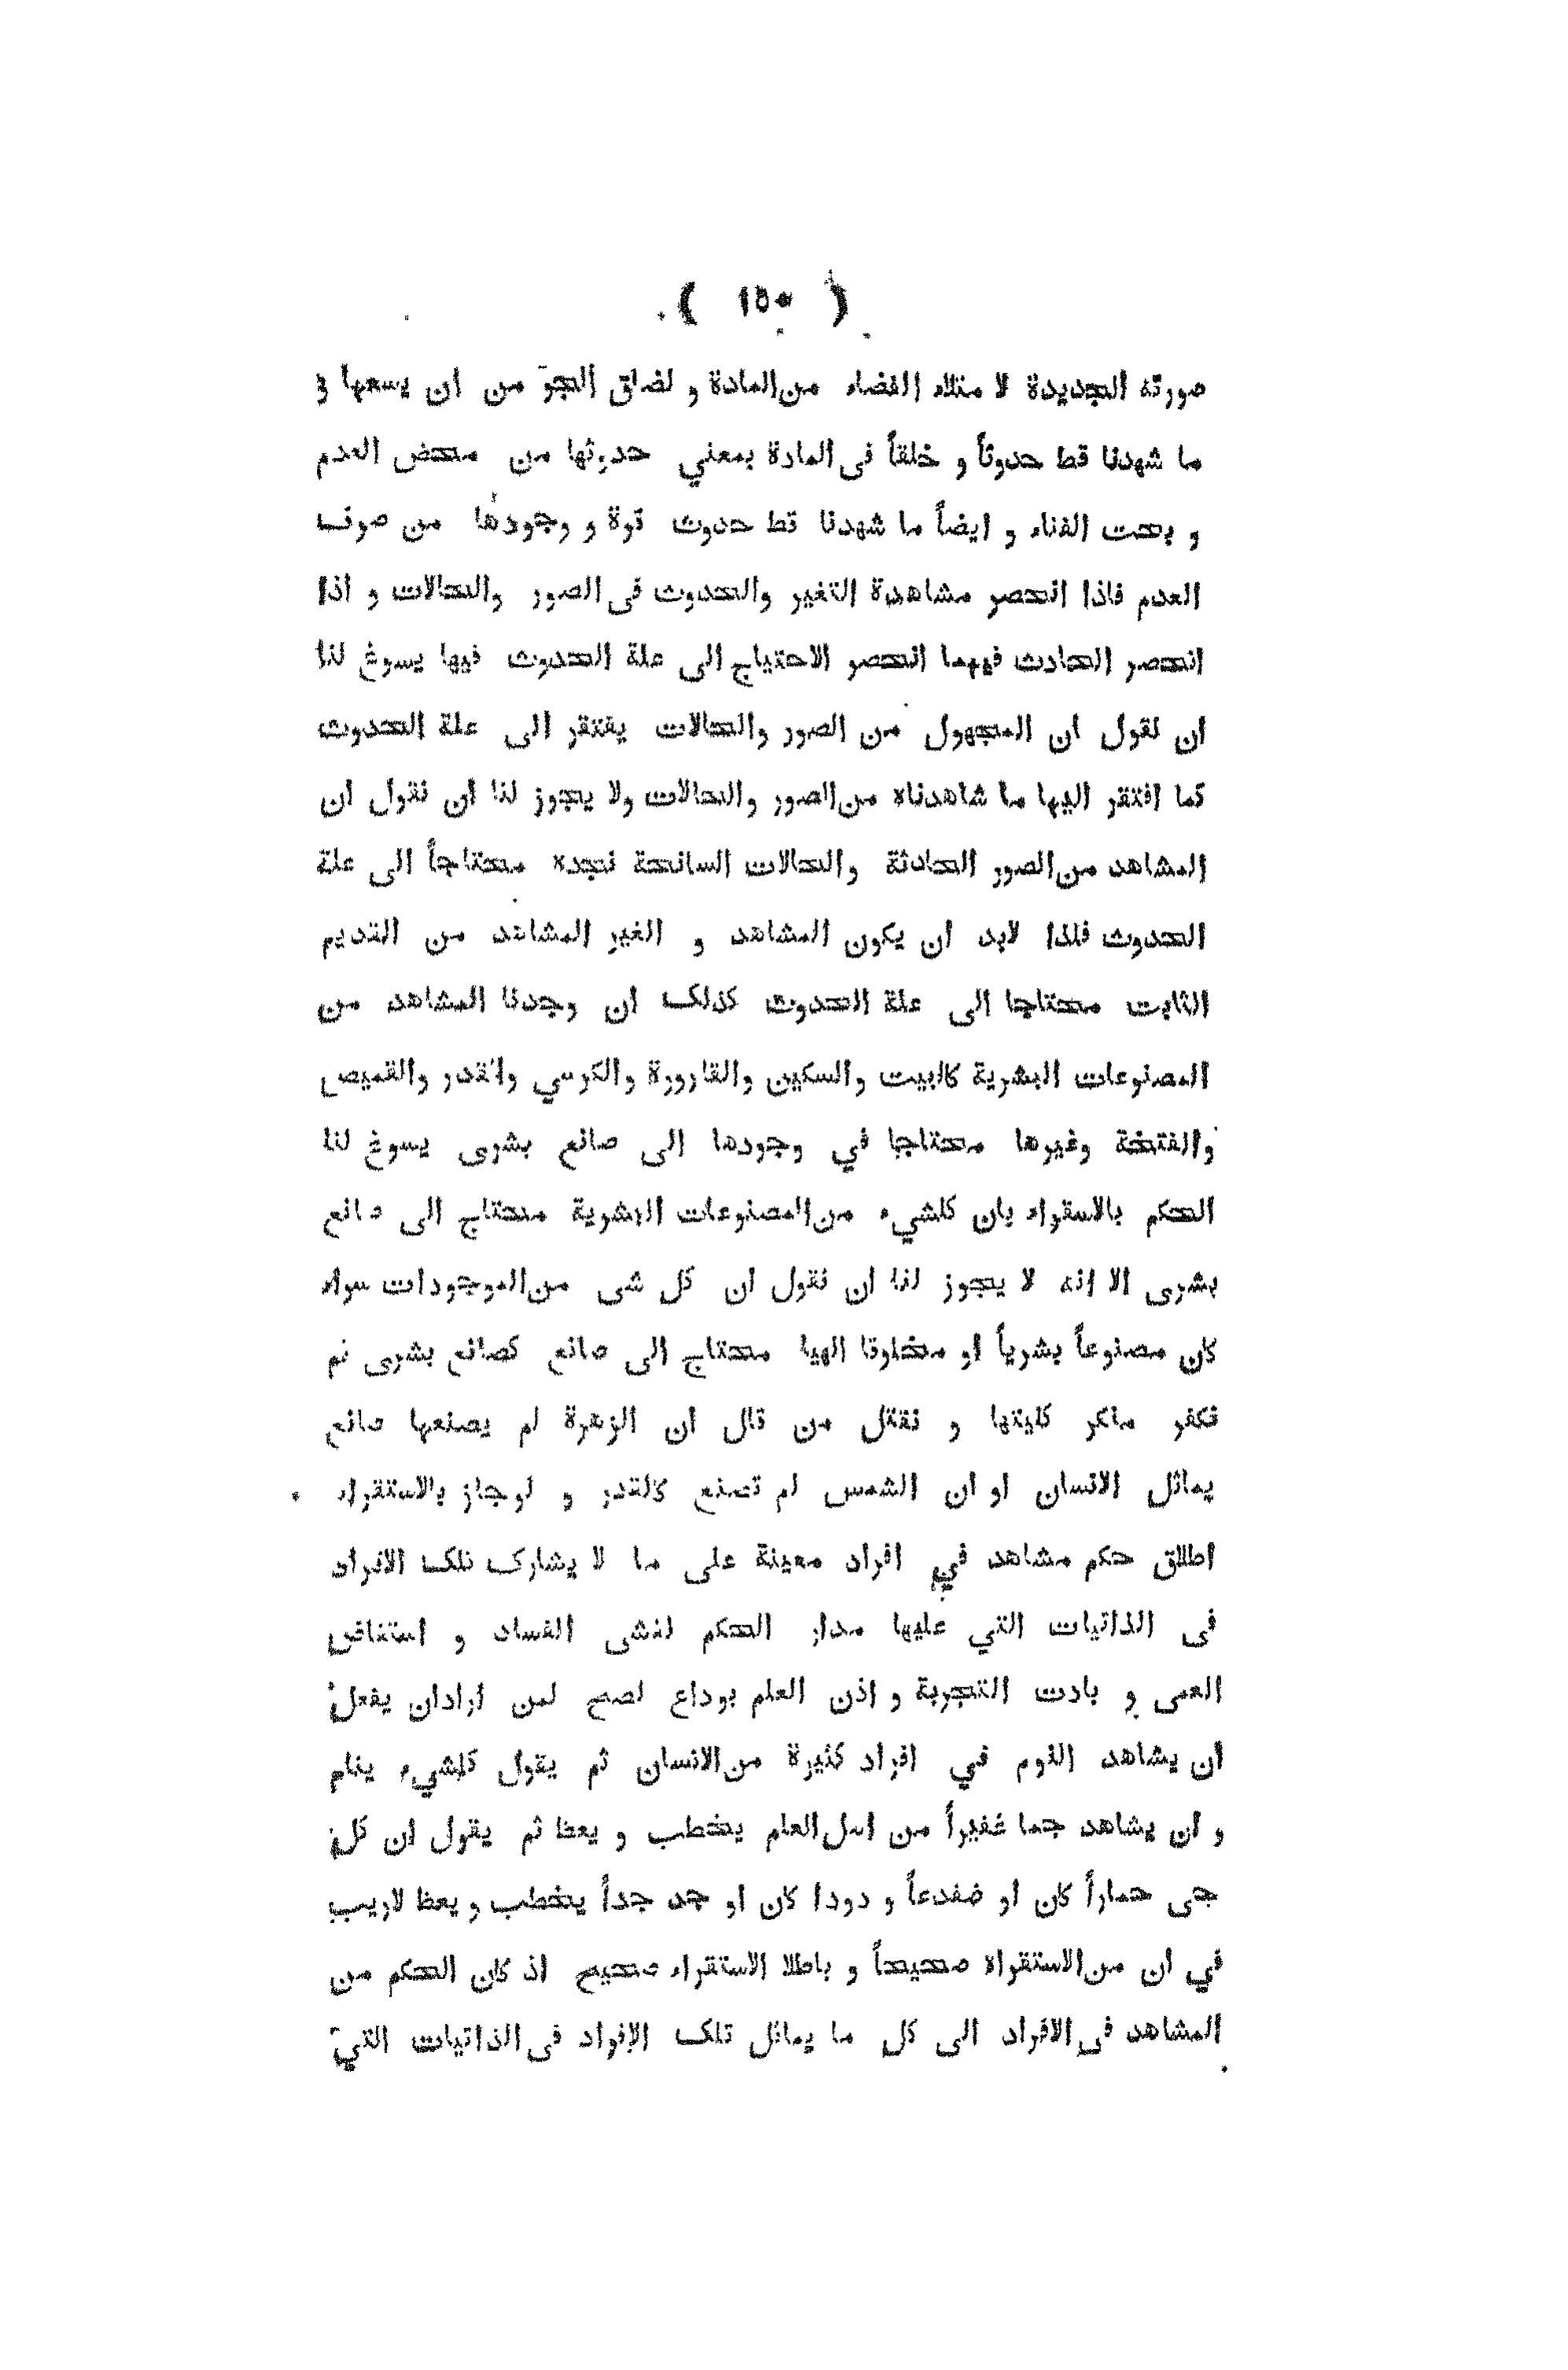 ( ١٥٠ )
صورته الجديدة لا متلاء الفضاء من المادة و لضاق الجوّ من ان يسعها و
ما شهدنا قط حدوثاً و خلقاً فى المادة بمعني حدوثها من محض العدم
و بحت الفناء و ايضاً ما شهدنا قط حدوث قوة و وجودها من صرف
العدم فاذا انحصر مشاهدة التغير والحدوث فى الصور والحالات و اذا
انحصر الحادث فيهما انحصر الاحتياج الى علة الحدوث فيها يسوغ لنا
ان نقول ان المجهول من الصور والحالات يفتقر الى علة الحدوث
كما افتقر اليها ما شاهدناه من الصور والحالات ولا يجوز لنا ان نقول ان
المشاهد من الصور الحادثة والحالات السانحة نجده محتاجاً الى علة
الحدوث فلذا لابد ان يكون المشاهد و الغير المشاهد من القديم
الثابت محتاجا الى علة الحدوث كذلك ان وجدنا المشاهد من
المصنوعات البشرية كالبيت والسكين والقارورة والكرسي والقدر والقميص
والفتخة وغيرها محتاجا في وجودها الى صانع بشرى يسوغ لنا
الحكم بالاسقراء بان كلشيء من المصنوعات البشرية محتاج الى صانع
بشرى الا انه لا يجوز لنا ان نقول ان كل شى من الموجودات سواء
كان مصنوعاً بشرياً او مخلوقا الهيا محتاج الى صانع كصانع بشرى ثم
نكفر منكر كليتها و نقتل من قال ان الزهرة لم يصنعها صانع
يماثل الانسان او ان الشمس لم تصنع كالقدر و لوجاز بالاستقراء
اطلاق حكم مشاهد في افراد معينة على ما لا يشارك تلك الافراد
فى الذاتيات التي عليها مدار الحكم لفشى الفساد و استفاض
العمى و بادت التجربة و اذن العلم بوداع لصح لمن ارادان يفعل
ان يشاهد النوم في افراد كثيرة من الانسان ثم يقول كلشيء ينام
و ان يشاهد جما غفيراً من اهل العلم يخطب و يعظ ثم يقول ان كل
حى حماراً كان او ضفدعاً و دودا كان او جد جداً يخطب و يعظ لاريب
في ان من الاستقراء صحيحاً و باطلا الاستقراء صحيح اذ كان الحكم من
المشاهد فى الافراد الى كل ما يماثل تلك الافراد فى الذاتيات التي